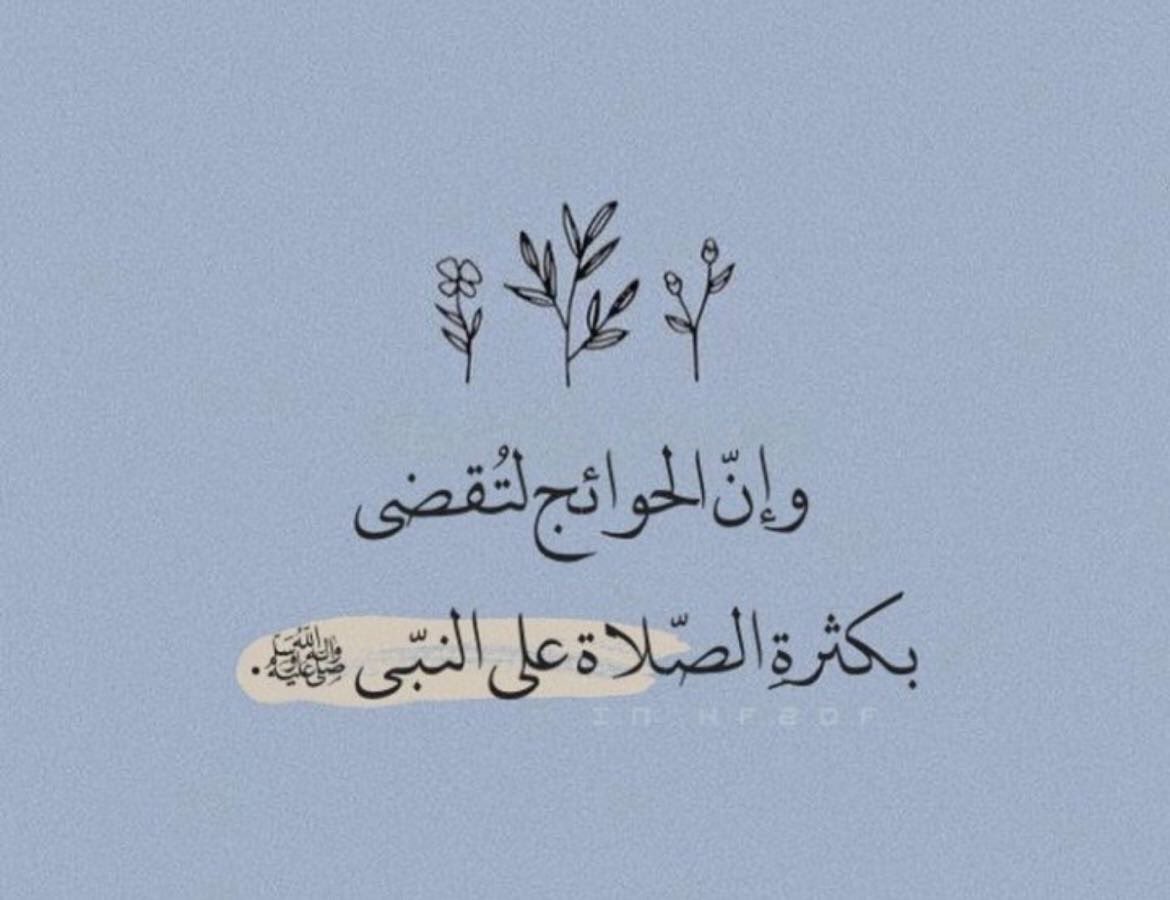 وإنّ الحوائج لتُقضى
بكثرةِ الصّلاة على النبّي ﷺ.